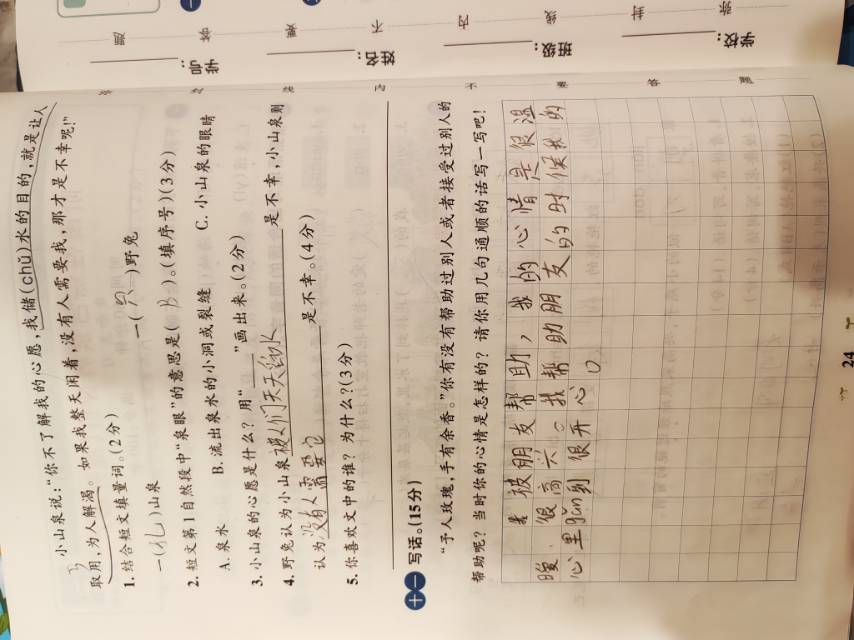 小山泉说：“你不了解我的心愿，我储(chǔ)水的目的，就是让人
取用，为人解渴。如果我整天闲着，没有人需要我，那才是不幸呢！”
1. 结合短文填量词。(2分)
一( )山泉 一(只)野兔
2. 短文第1自然段中“泉眼”的意思是( B )。(填序号)(3分)
A. 泉水 B. 流出泉水的小洞或裂缝 C. 小山泉的眼睛
3. 小山泉的心愿是什么？用“____”画出来。(2分)
4. 野兔认为小山泉被人们天天约水是不幸，小山泉则
认为没有人需要它是不幸。(4分)
5. 你喜欢文中的谁？为什么？(3分)
十一 写话。(15分)
“予人玫瑰，手有余香。”你有没有帮助过别人或者接受过别人的
帮助呢？当时你的心情是怎样的？请你用几句通顺的话写一写吧！
我被朋友帮助，我的心情是很温
暖、很高兴。我帮助朋友的时候我的
心里gǎn到很开心。
24
学校：
班级：
姓名：